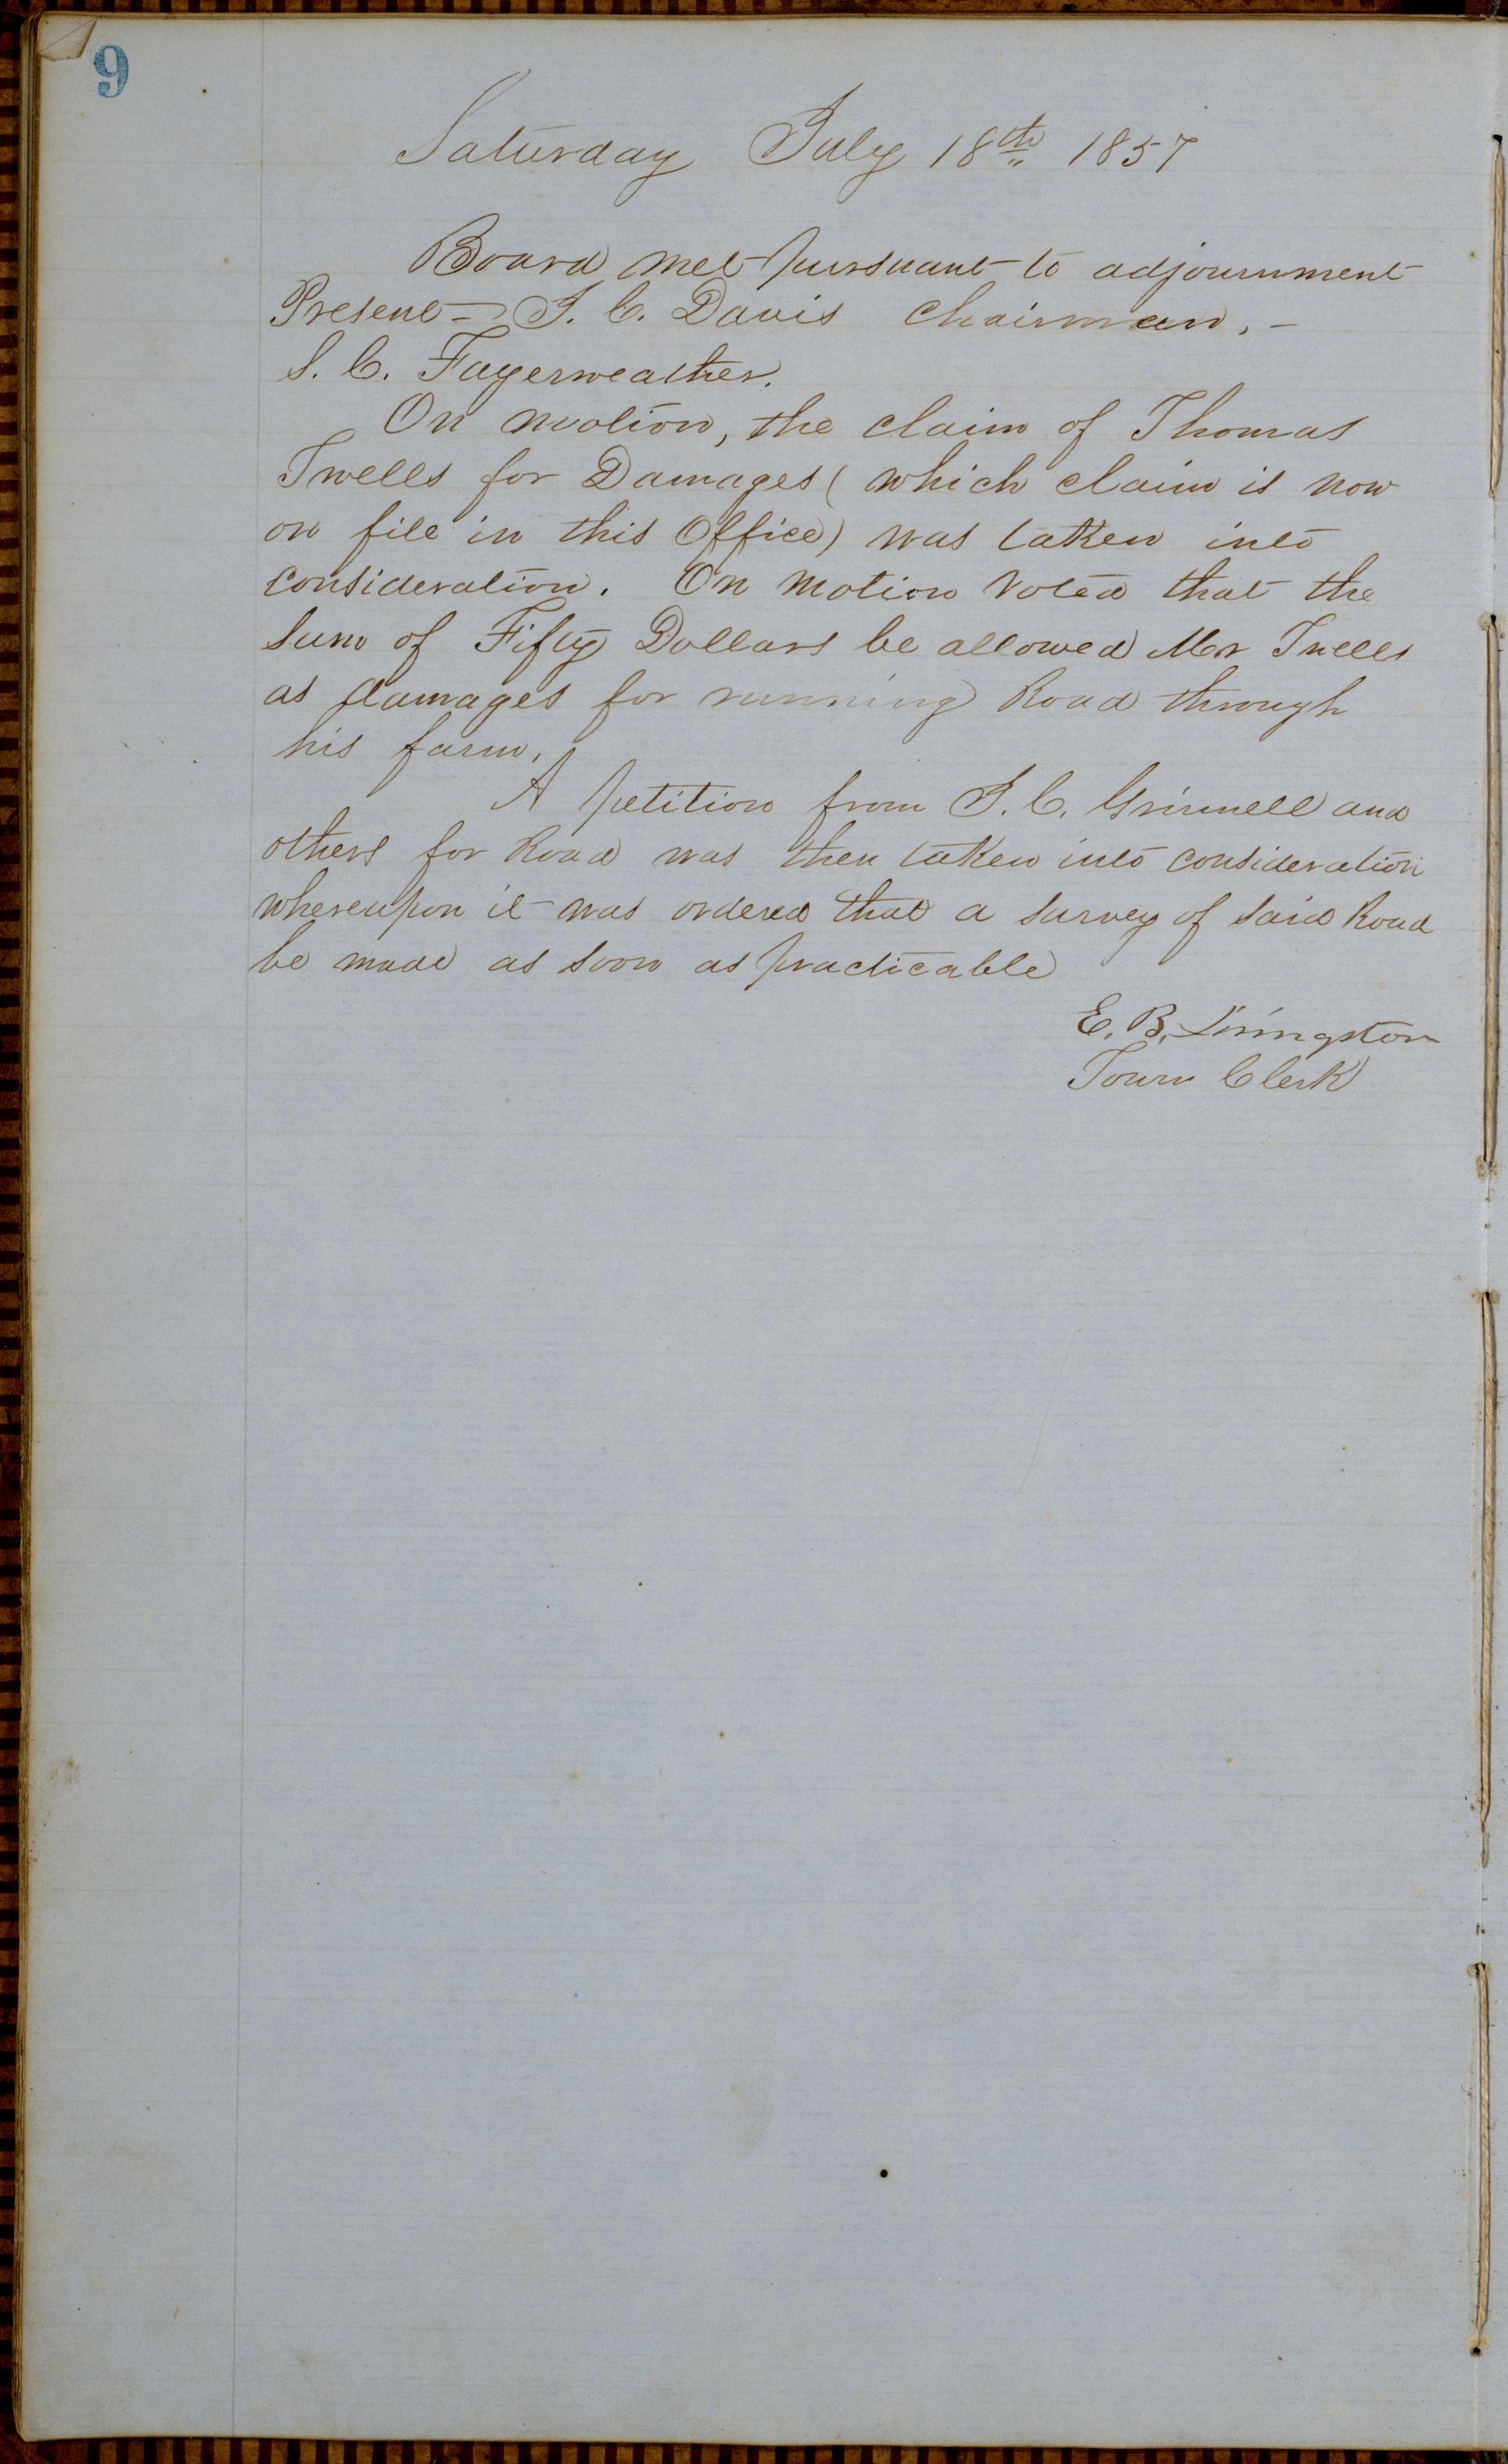 9
Saturday July 18th 1857
Board met pursuant to adjournment
Present - J. C. Davis Chairman. -
S. C. Fayerweather.
On motion, the claim of Thomas
Twells for Damages ( which claim is now
on file in this Office) was taken into
consideration. On Motion Voted that the
Sum of Fifty Dollars be allowed Mr Twells
as damages for running Road through
his farm.
A petition from J. C. Grinnell and
others for Road was then taken into consideration
whereupon it was ordered that a survey of said Road
be made as soon as practicable
E. B. Livingston
Town Clerk